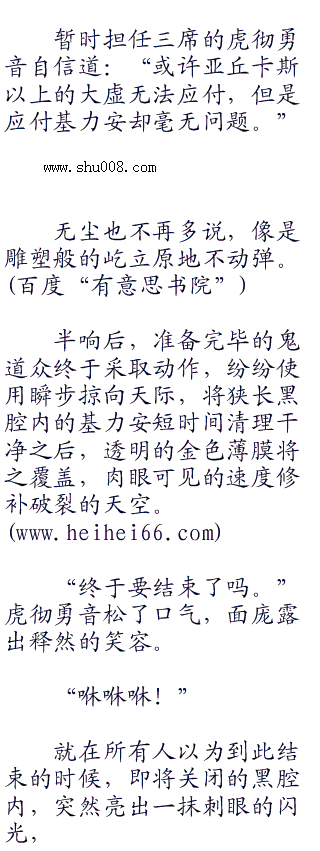 暂时担任三席的虎彻勇
音自信道：“或许亚丘卡斯
以上的大虚无法应付，但是
应付基力安却毫无问题。”
www.shu008.com
无尘也不再多说，像是
雕塑般的屹立原地不动弹。
(百度“有意思书院”)
半响后，准备完毕的鬼
道众终于采取动作，纷纷使
用瞬步掠向天际，将狭长黑
腔内的基力安短时间清理干
净之后，透明的金色薄膜将
之覆盖，肉眼可见的速度修
补破裂的天空。
(www.heihei66.com)
“终于要结束了吗。”
虎彻勇音松了口气，面庞露
出释然的笑容。
“咻咻咻！”
就在所有人以为到此结
束的时候，即将关闭的黑腔
内，突然亮出一抹刺眼的闪
光，